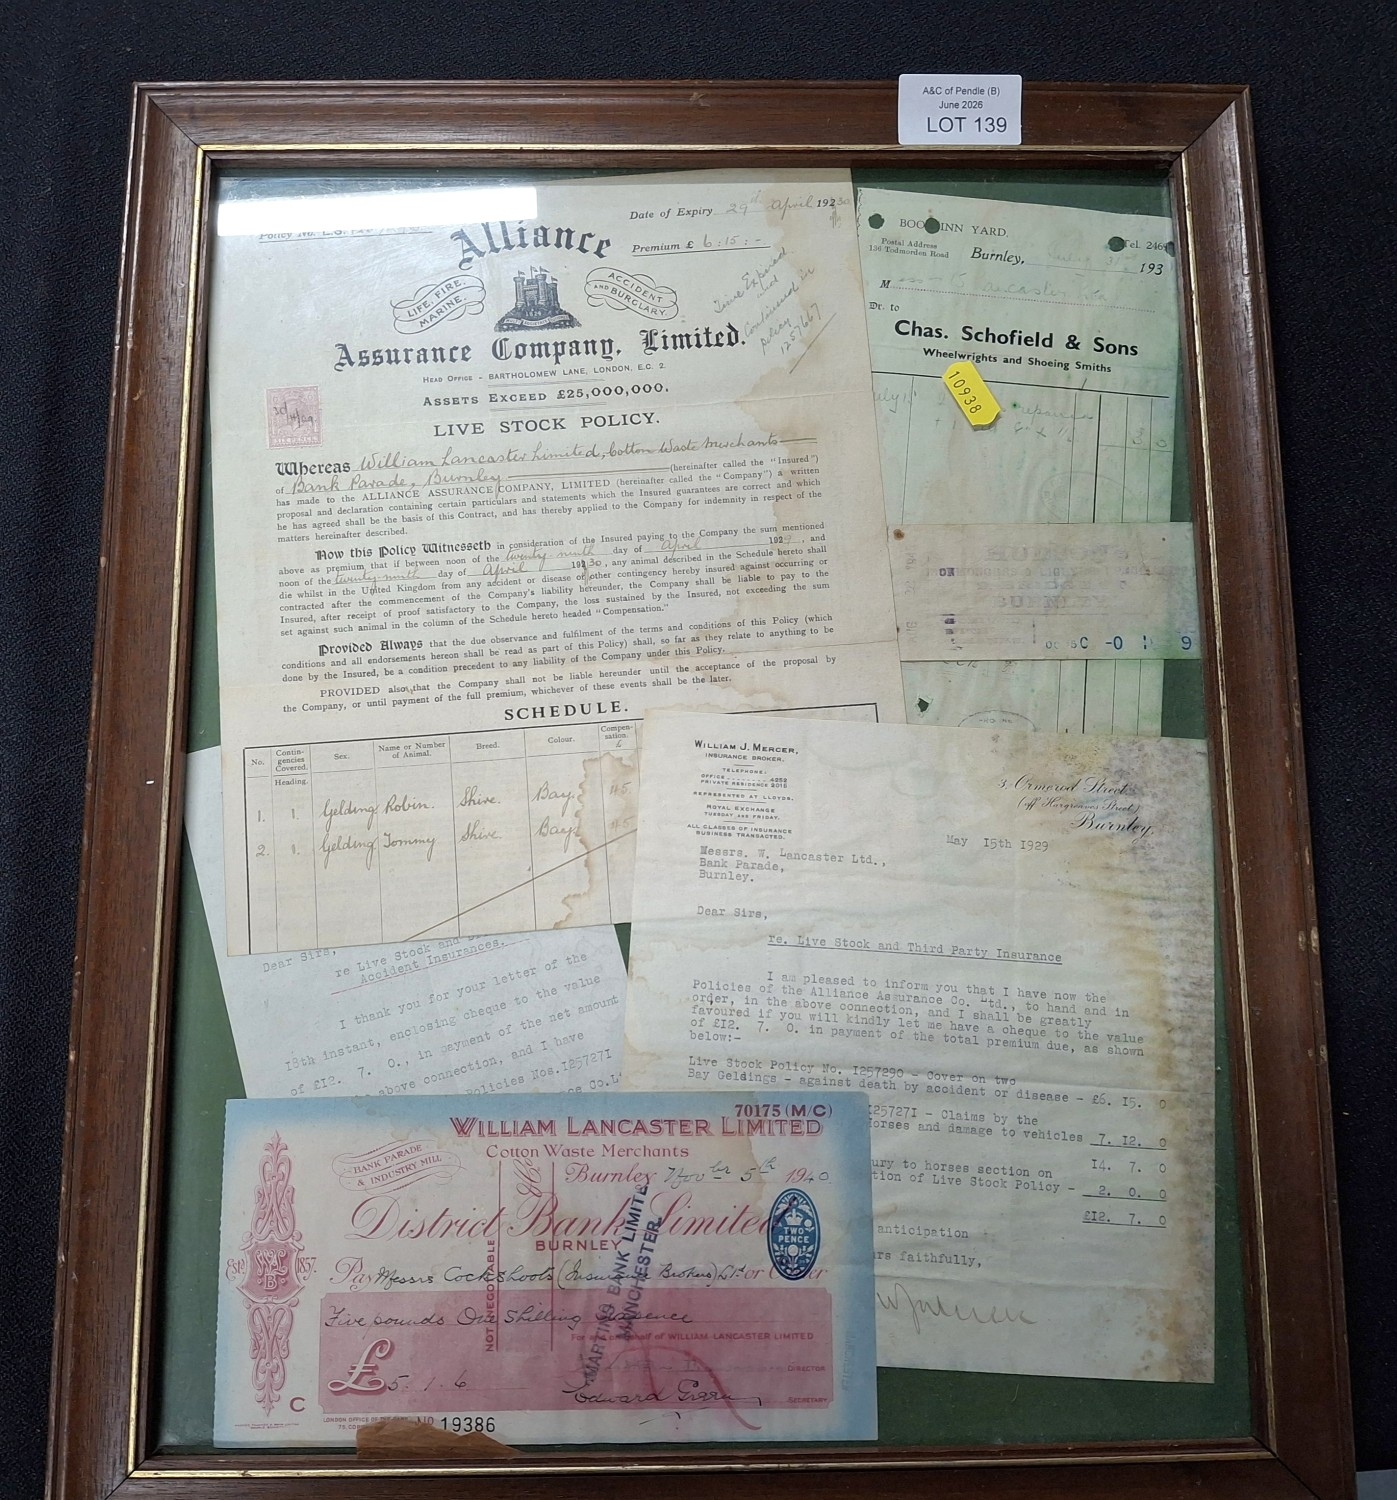 A&C of Pendle (B)
June 2026
LOT 139
Date of Expiry 29th April 1930
Premium £ 6:15:-
Alliance
LIFE, FIRE, MARINE.
ACCIDENT AND BURGLARY.
Assurance Company, Limited.
Time Expired and Continued in policy 1257667
HEAD OFFICE - BARTHOLOMEW LANE, LONDON, E.C. 2.
ASSETS EXCEED £25,000,000.
LIVE STOCK POLICY.
Whereas William Lancaster Limited, Cotton Waste Merchants
of Bank Parade, Burnley (hereinafter called the "Insured")
has made to the ALLIANCE ASSURANCE COMPANY, LIMITED (hereinafter called the "Company") a written
proposal and declaration containing certain particulars and statements which the Insured guarantees are correct and which
he has agreed shall be the basis of this Contract, and has thereby applied to the Company for indemnity in respect of the
matters hereinafter described.
Now this Policy Witnesseth in consideration of the Insured paying to the Company the sum mentioned
above as premium that if between noon of the twenty ninth day of April 1929, and
noon of the twenty-ninth day of April 1930, any animal described in the Schedule hereto shall
die whilst in the United Kingdom from any accident or disease or other contingency hereby insured against occurring or
contracted after the commencement of the Company's liability hereunder, the Company shall be liable to pay to the
Insured, after receipt of proof satisfactory to the Company, the loss sustained by the Insured, not exceeding the sum
set against such animal in the column of the Schedule hereto headed "Compensation."
Provided Always that the due observance and fulfilment of the terms and conditions of this Policy (which
conditions and all endorsements hereon shall be read as part of this Policy) shall, so far as they relate to anything to be
done by the Insured, be a condition precedent to any liability of the Company under this Policy.
PROVIDED also, that the Company shall not be liable hereunder until the acceptance of the proposal by
the Company, or until payment of the full premium, whichever of these events shall be the later.
SCHEDULE.
No. Contingencies Covered. Sex. Name or Number of Animal. Breed. Colour. Compensation. £
Heading.
1. 1. Gelding Robin. Shire. Bay. 45
2. 1. Gelding Tommy Shire. Bay. 45
INN YARD,
Tel. 246
Postal Address
136 Todmorden Road
Burnley, 193
M
Dr. to
Chas. Schofield & Sons
Wheelwrights and Shoeing Smiths
10938
WILLIAM J. MERCER,
INSURANCE BROKER.
TELEPHONE:
OFFICE 4259
PRIVATE RESIDENCE 2016
REPRESENTED AT LLOYDS.
ROYAL EXCHANGE
TUESDAY AND FRIDAY.
ALL CLASSES OF INSURANCE
BUSINESS TRANSACTED.
3, Ormerod Street,
(off Hargreaves Street)
Burnley,
May 15th 1929
Messrs. W. Lancaster Ltd.,
Bank Parade,
Burnley.
Dear Sirs,
re. Live Stock and Third Party Insurance
I am pleased to inform you that I have now the
Policies of the Alliance Assurance Co. Ltd., to hand and in
order, in the above connection, and I shall be greatly
favoured if you will kindly let me have a cheque to the value
of £12. 7. 0. in payment of the total premium due, as shown
below:-
Live Stock Policy No. 1257290 - Cover on two
Bay Geldings - against death by accident or disease - £6. 15. 0
1257271 - Claims by the
Horses and damage to vehicles 7. 12. 0
14. 7. 0
ury to horses section on
tion of Live Stock Policy - 2. 0. 0
£12. 7. 0
anticipation
rs faithfully,
Dear Sirs,
re Live Stock and
Accident Insurances.
I thank you for your letter of the
18th instant, enclosing cheque to the value
of £12. 7. 0., in payment of the net amount
above connection, and I have
Policies Nos. 1257271
ce Co.L
70175 (M/C)
WILLIAM LANCASTER LIMITED
Cotton Waste Merchants
BANK PARADE & INDUSTRY MILL
Burnley Novbr 5th 1940
District Bank Limited
BURNLEY
TWO PENCE
Estd. 1857.
WL
B
Pay Messrs Cockshoots (Insurance Brokers) Ltd or Order
Five pounds One Shilling Sixpence
For and on behalf of WILLIAM LANCASTER LIMITED
DIRECTOR
£5. 1. 6
Edward Green
SECRETARY
NOT NEGOTIABLE
& Co
MARTINS BANK LIMITED
MANCHESTER
C
No 19386